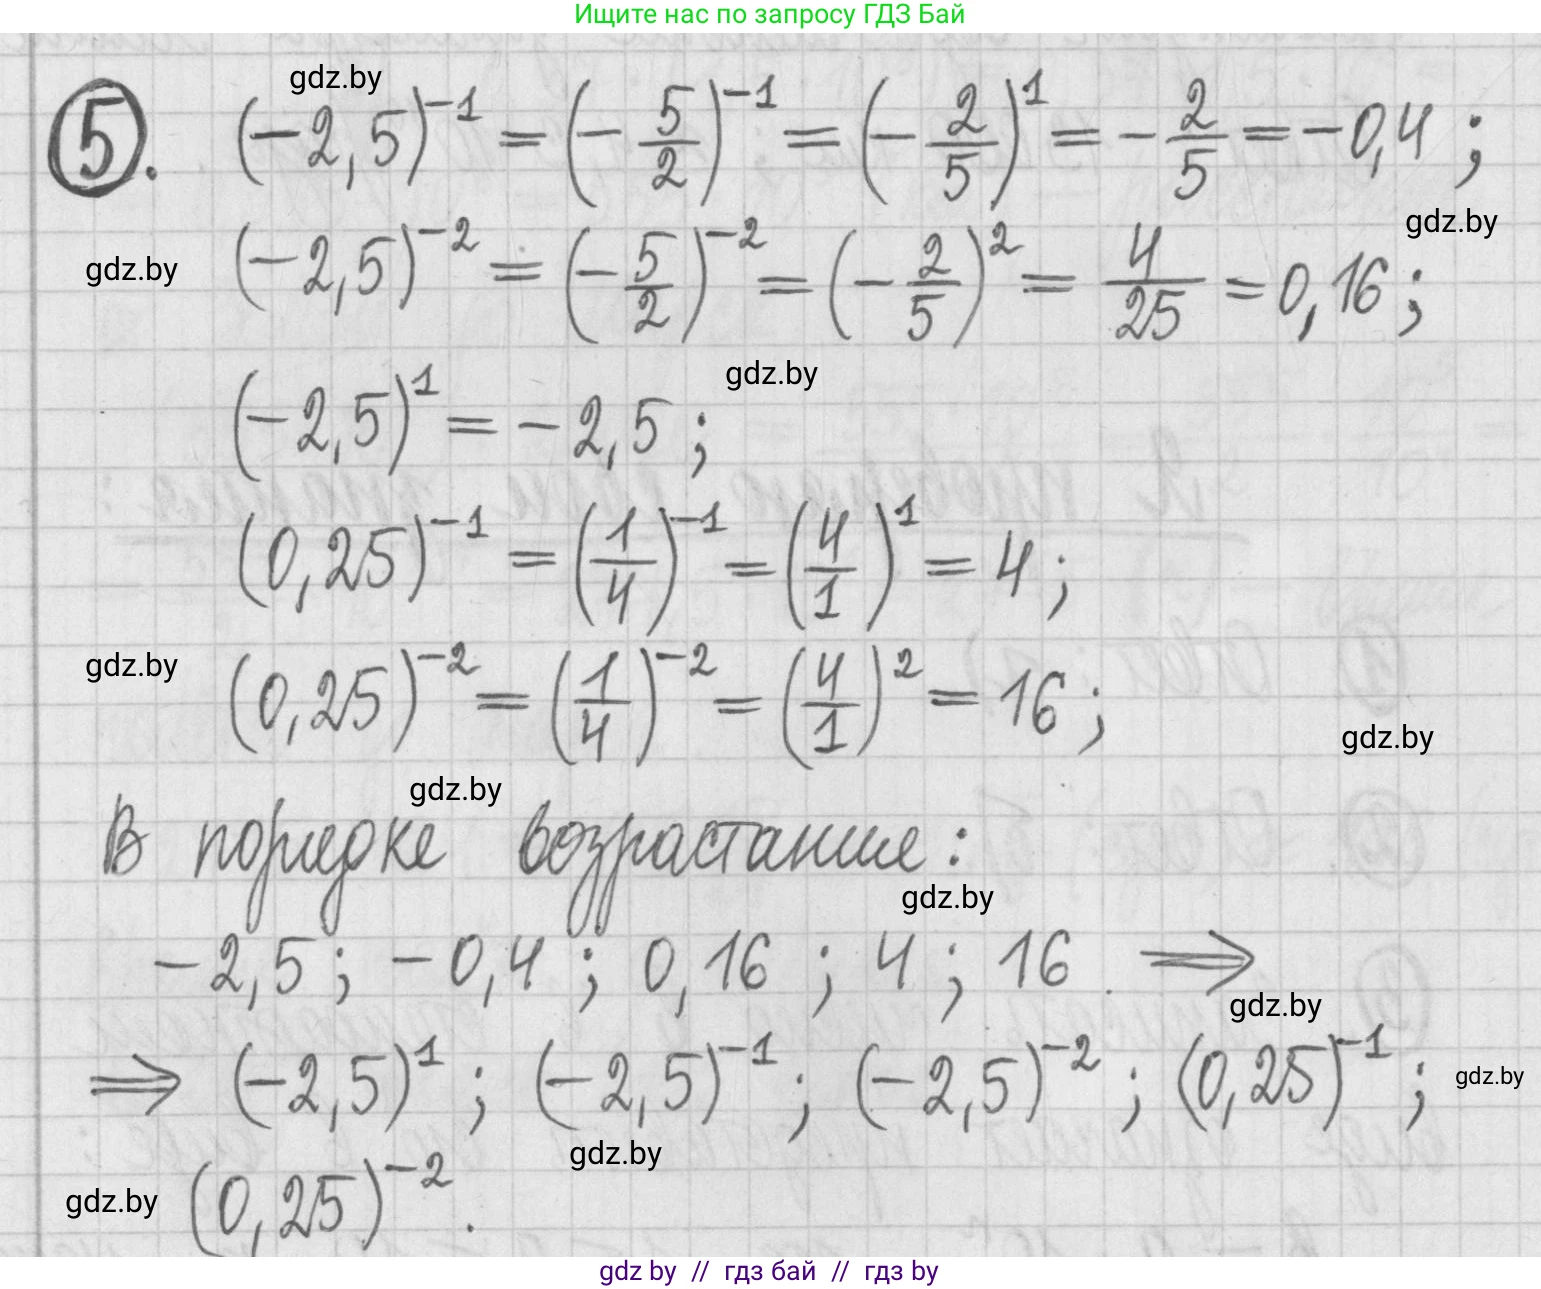 Ищите нас по запросу ГДЗ Бай
gdz.by
5. (-2,5)^-1 = (-5/2)^-1 = (-2/5)^1 = -2/5 = -0,4 ;
gdz.by
gdz.by
(-2,5)^-2 = (-5/2)^-2 = (-2/5)^2 = 4/25 = 0,16 ;
gdz.by
(-2,5)^1 = -2,5 ;
(0,25)^-1 = (1/4)^-1 = (4/1)^1 = 4 ;
gdz.by
(0,25)^-2 = (1/4)^-2 = (4/1)^2 = 16 ;
gdz.by
gdz.by
В порядке возрастания :
gdz.by
-2,5 ; -0,4 ; 0,16 ; 4 ; 16 . ⇒
gdz.by
⇒ (-2,5)^1 ; (-2,5)^-1 ; (-2,5)^-2 ; (0,25)^-1 ;
gdz.by
gdz.by
gdz.by
(0,25)^-2 .
gdz by // гдз бай // гдз by